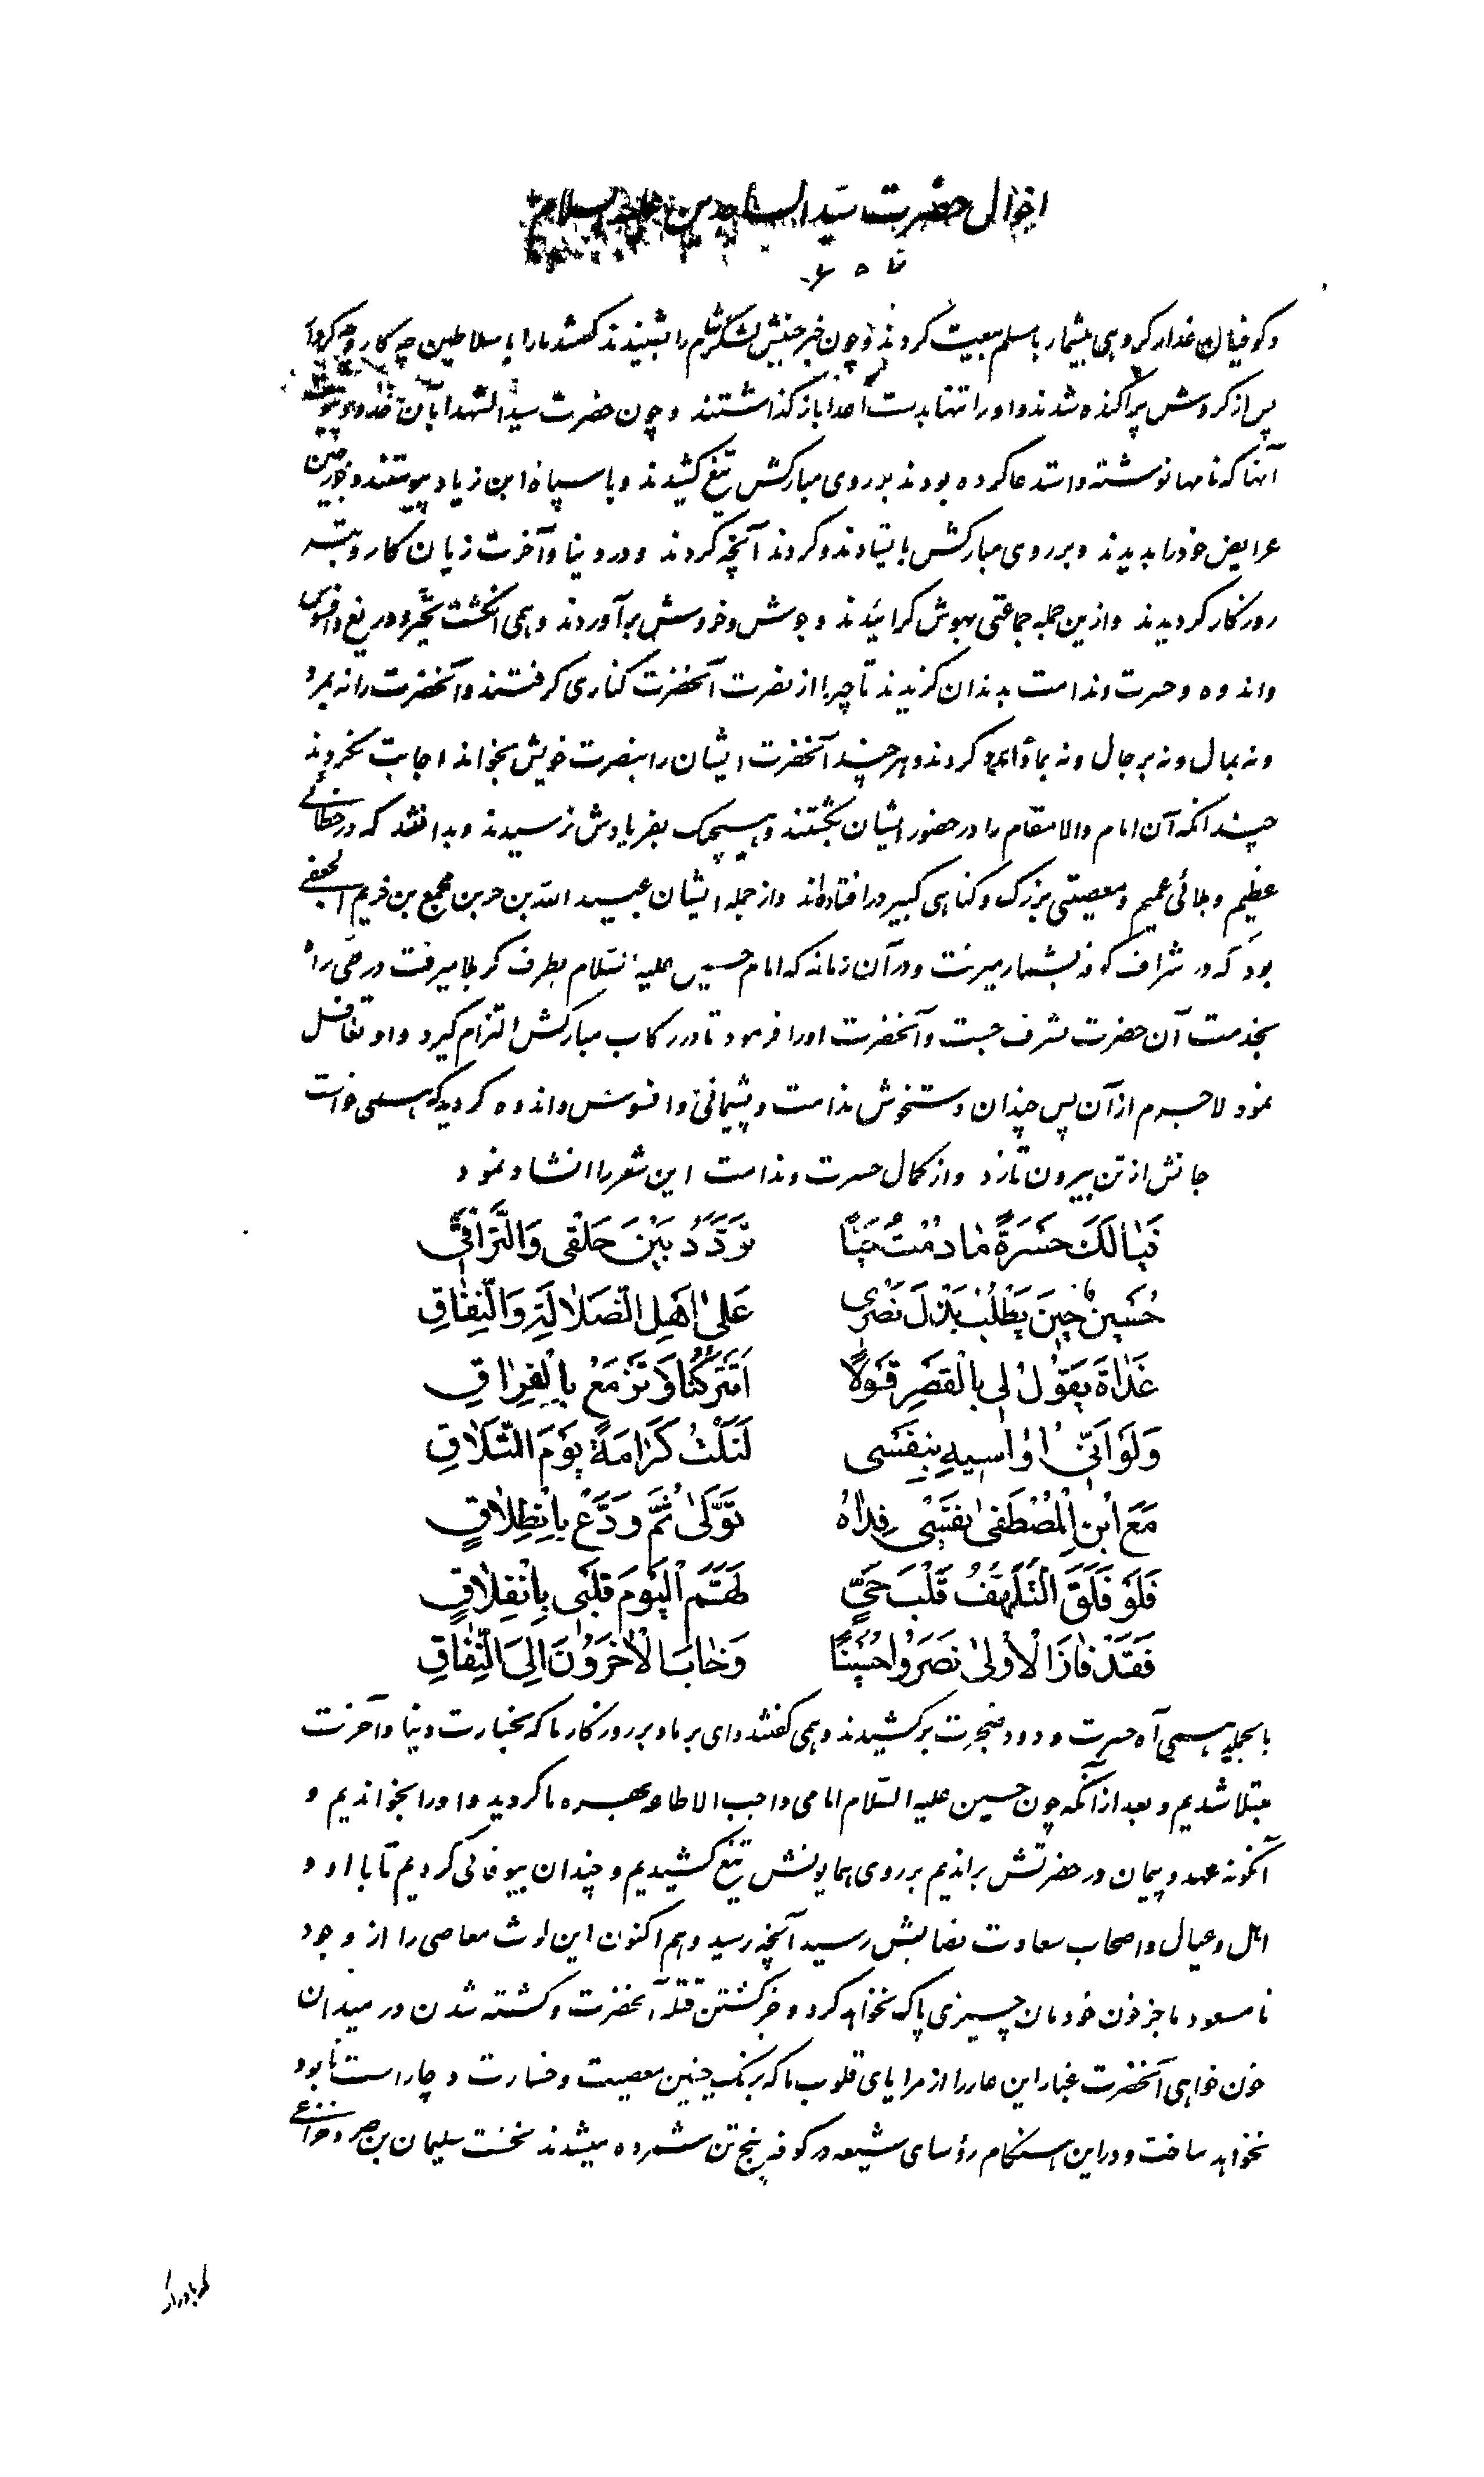 احوال حضرت سید الساجدین علیه السلام
و کوفیان غدار کروهی بیشمار با مسلم بیعت کردند و چون خبر جنبش لشکر شام را بشنیدند کفتند ما را با سلاطین چه کار
پس از کردش پراکنده شدند و او را تنها بدست اعدا باز کذاشتند و چون حضرت سید الشهدا بآن
آنها که نامها نوشته و استدعا کرده بودند بر روی مبارکش تیغ کشیدند و با سپاه ابن زیاد پیوستند و
عرایض خود را بدیدند و بر روی مبارکش بایستادند و کردند آنچه کردند و در دنیا و آخرت زیان کار و تبه
روزکار کردیدند و ازین جمله جماعتی بهوش کرائیدند و جوش و خروش برآوردند و همی انکشت تحیر و دریغ و افسوس
و اندوه و حسرت و ندامت بدندان کزیدند تا چرا از نصرت آنحضرت کناری کرفتند و آنحضرت را نه بمرد
و نه بمال و نه برجال و نه کردند و هر چند آنحضرت ایشان را بنصرت خویش بخواند اجابت نکردند
چندانکه آن امام والا مقام را در حضور ایشان بکشتند و هیچیک بفریادش نرسیدند و بدانستند که در خطائی
عظیم و بلائی عمیم و معصیتی بزرک و کناهی کبیر در افتاده‌اند و از جمله ایشان عبید الله بن حر بن مجمع بن خریم الجعفی
بود که در اشراف کوفه بشمار میرفت و در آن زمانه که امام حسین علیه السلام بطرف کربلا میرفت در طی راه
بخدمت آن حضرت تشرف جست و آنحضرت او را فرمود تا در رکاب مبارکش التزام کیرد و او تغافل
نمود لاجرم از آن پس چندان دستخوش ندامت و پشیمانی و افسوس و اندوه کردید که همی خواست
جانش از تن بیرون تازد و از کمال حسرت و ندامت این شعر را انشاد نمود
فَیٰا لَكَ حَسْرَةً مٰا دُمْتُ حَیًّا تَرَدَّدُ بَیْنَ حَلْقی وَالتَّرٰاقی
حُسَیْنٌ حینَ یَطْلُبُ بَذْلَ نَصْری عَلیٰ اَهْلِ الضَّلاٰلَةِ وَالنِّفٰاقِ
غَدٰاةَ یَقُولُ لی بِالْقَصْرِ قَوْلًا اَتَتْرُکُنٰا وَ تَزْمَعُ بِالْفِرٰاقِ
وَلَوْ اَنّی اُوٰاسیهِ بِنَفْسی لَنَلْتُ کَرٰامَةً یَوْمَ التَّلاٰقِ
مَعَ ابْنِ الْمُصْطَفیٰ نَفْسی فِدٰاهُ تَوَلّیٰ ثُمَّ وَدَّعَ بِانْطِلاٰقٍ
فَلَوْ فَلَقَ التَّلَهُّفُ قَلْبَ حَیٍّ لَهَمَّ الْیَوْمَ قَلْبی بِانْفِلاٰقٍ
فَقَدْ فٰازَ الْاُولیٰ نَصَرُوا حُسَیْنًا وَ خٰابَ الْاٰخَرُونَ اِلَی النِّفٰاقِ
بالجمله همی آه حسرت و دود ضجرت برکشیدند و همی کفتند وای بر ما و بر روزکار ما که بخسارت دنیا و آخرت
مبتلا شدیم و بعد از آنکه چون حسین علیه السلام امامی واجب الاطاعه بهره ما کردید و او را بخواندیم و
آنکونه عهد و پیمان در حضرتش براندیم بر روی همایونش تیغ کشیدیم و چندان بیوفائی کردیم تا با او و
اهل و عیال و اصحاب سعادت نصابش رسید آنچه رسید و هم اکنون این لوث معاصی را از وجود
نا مسعود ما جز خون خودمان چیزی پاک نخواهد کرد و جز کشتن قتله آنحضرت و کشته شدن در میدان
خون خواهی آنحضرت غبار این عار را از مرایای قلوب ما که بزنک چنین معصیت و خسارت دچار است نابود
نخواهد ساخت و در این هنکام رؤسای شیعه در کوفه پنج تن شمرده میشدند نخست سلیمان بن صرد خزاعی